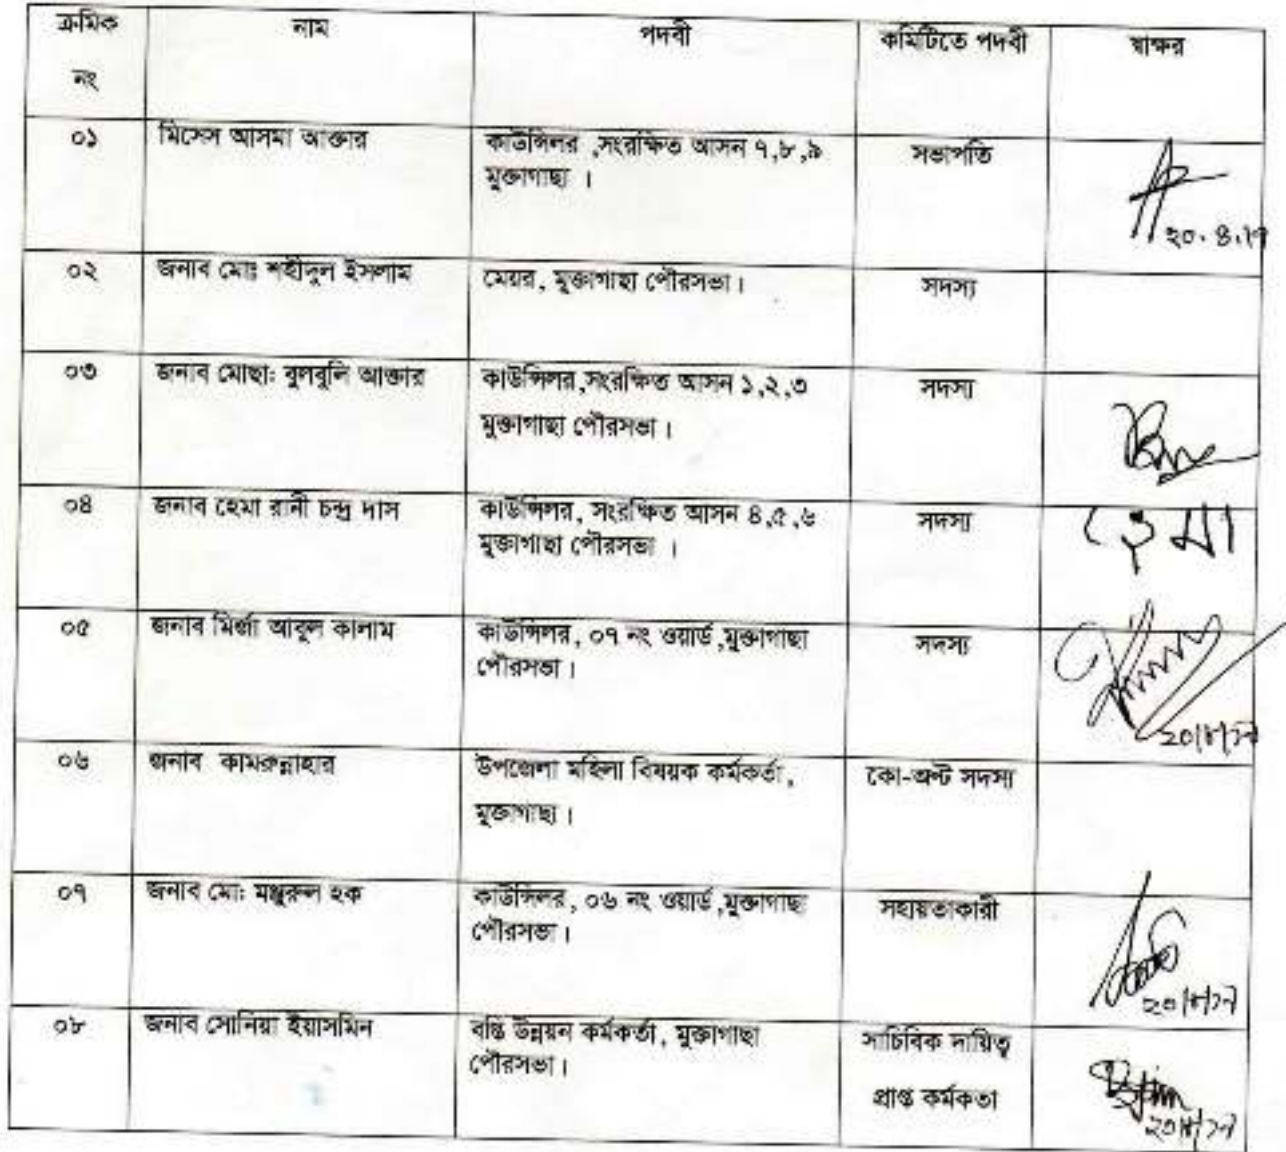 ক্রমিক নং	নাম	পদবী	কমিটিতে পদবী	স্বাক্ষর
০১	মিসেস আসমা আক্তার	কাউন্সিলর ,সংরক্ষিত আসন ৭,৮,৯	সভাপতি
মুক্তাগাছা ।
২০.৪.১৭
০২	জনাব মোঃ শহীদুল ইসলাম	মেয়র, মুক্তাগাছা পৌরসভা।	সদস্য
০৩	জনাব মোছা: বুলবুলি আক্তার	কাউন্সিলর,সংরক্ষিত আসন ১,২,৩	সদস্য
মুক্তাগাছা পৌরসভা।
০৪	জনাব হেমা রানী চন্দ্র দাস	কাউন্সিলর, সংরক্ষিত আসন ৪,৫,৬	সদস্য	হেমা
মুক্তাগাছা পৌরসভা ।
০৫	জনাব মির্জা আবুল কালাম	কাউন্সিলর, ০৭ নং ওয়ার্ড ,মুক্তাগাছা	সদস্য
পৌরসভা।
০৬	জনাব কামরুন্নাহার	উপজেলা মহিলা বিষয়ক কর্মকর্তা,	কো-অপ্ট সদস্য
মুক্তাগাছা।
০৭	জনাব মো: মঞ্জুরুল হক	কাউন্সিলর, ০৬ নং ওয়ার্ড ,মুক্তাগাছা	সহায়তাকারী
পৌরসভা।
০৮	জনাব সোনিয়া ইয়াসমিন	বস্তি উন্নয়ন কর্মকর্তা, মুক্তাগাছা	সাচিবিক দায়িত্ব
পৌরসভা।	প্রাপ্ত কর্মকতা